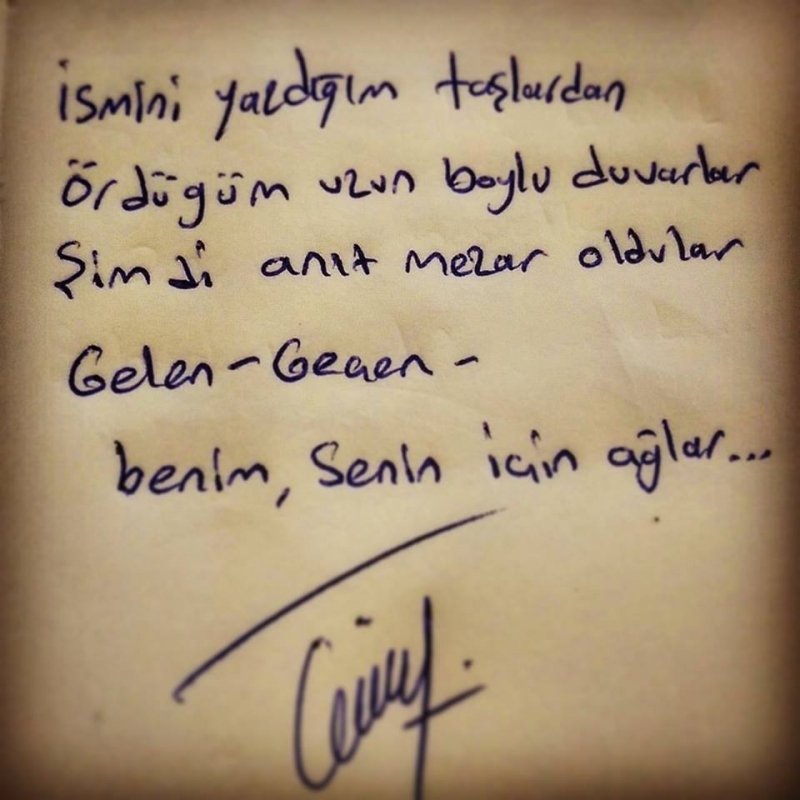 ismini yazdığım taşlardan
ördüğüm uzun boylu duvarlar
Şimdi anıt mezar oldular
Gelen - Geçen -
benim, Senin için ağlar...